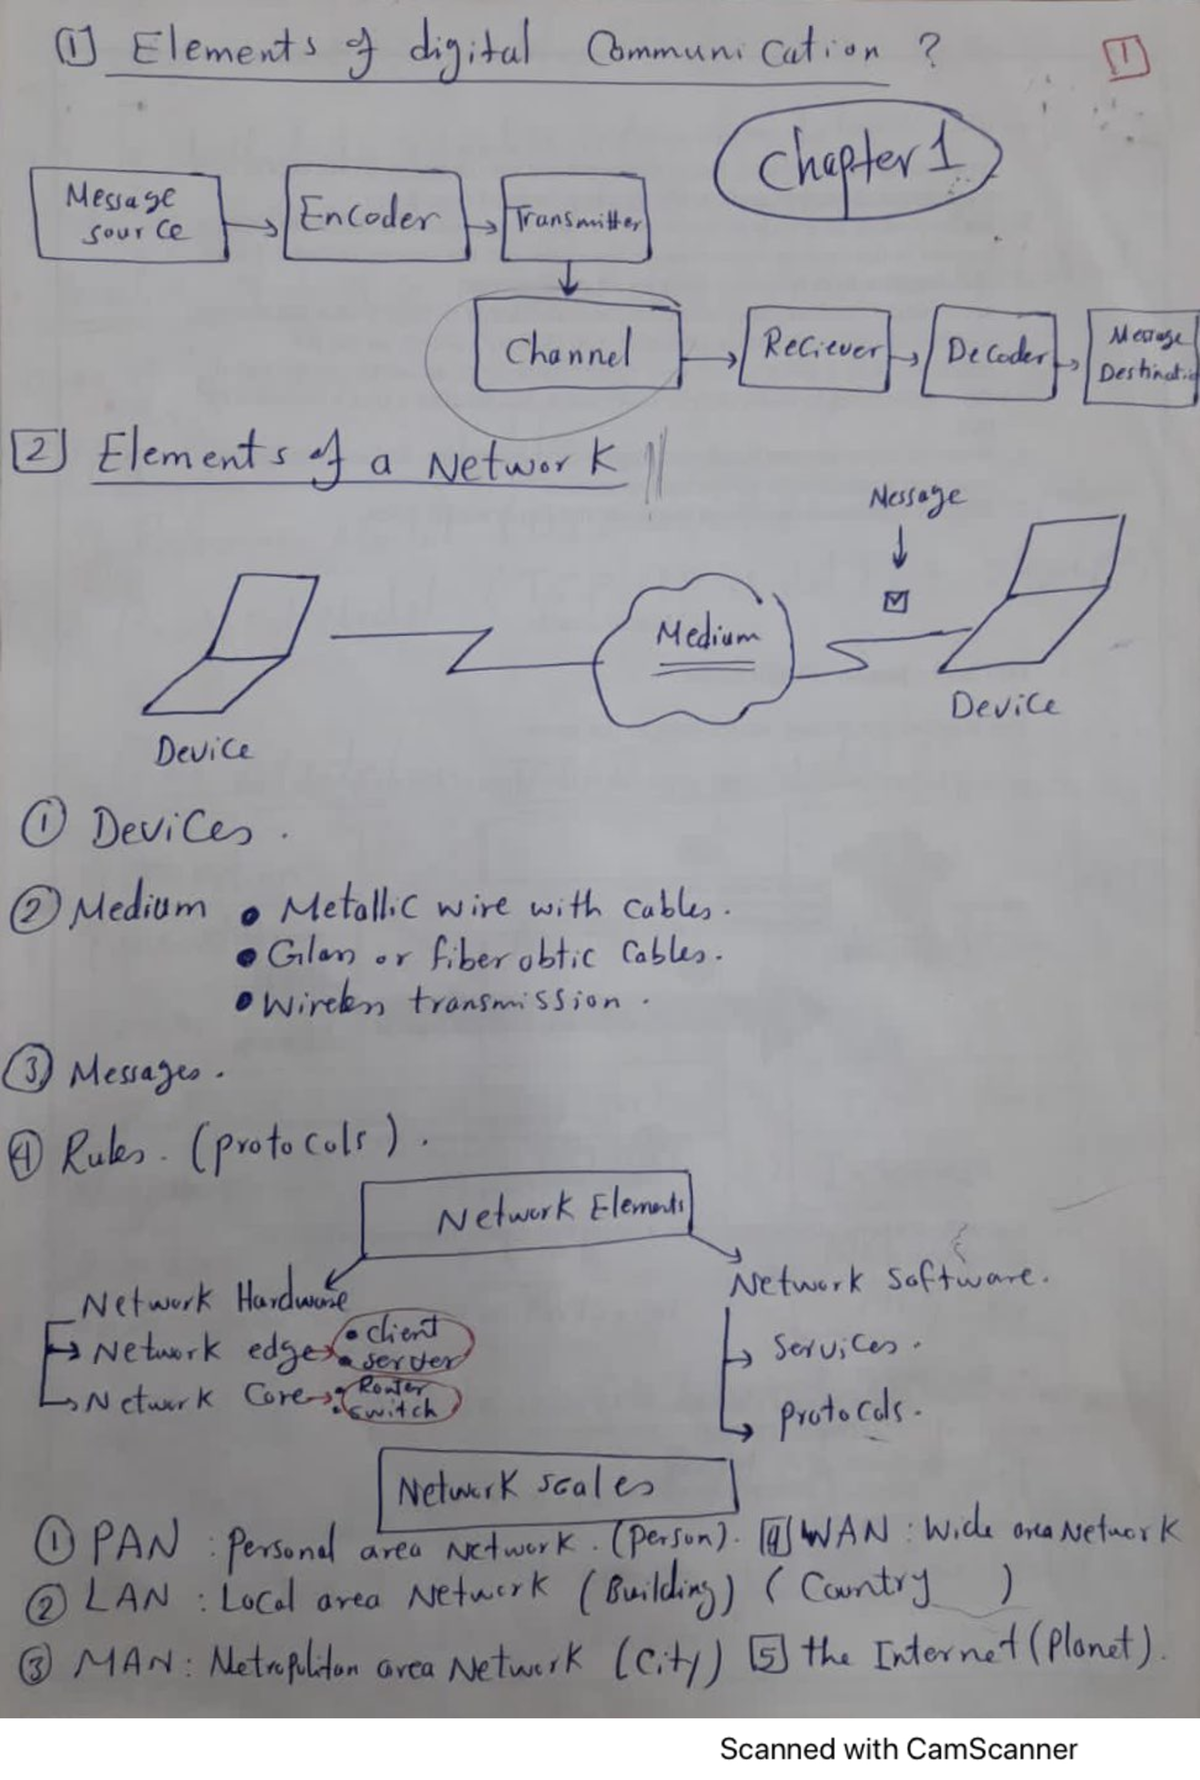 1 Elements of digital Communication ?
1
Chapter 1
Message
source
Encoder
Transmitter
Channel
Reciever
Decoder
Message
Destinatio
2 Elements of a Network
Message
Medium
Device
Device
1 Devices.
2 Medium • Metallic wire with cables.
• Glass or fiber obtic Cables.
• Wireless transmission.
3 Messages.
4 Rules. (protocols).
Network Elements
Network Hardware
Network Software.
Network edge → • client
• server
Services.
Network Core → • Router
• switch
protocols.
Network scales
1 PAN : Personal area Network. (person). 4 WAN : Wide area Network
2 LAN : Local area Network (Building) (Country )
3 MAN : Metropolitan area Network (City) 5 the Internet (Planet).
Scanned with CamScanner